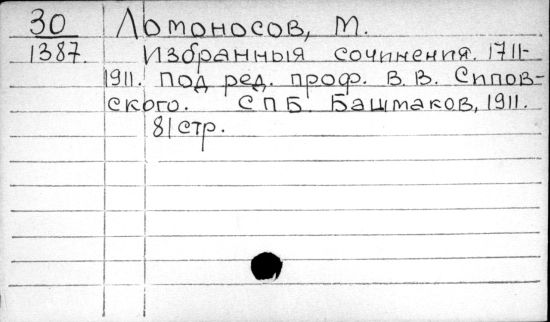 30 Ломоносов, М.
1387. Избранныя сочинения. 1711-
1911. под ред. проф. В. В. Сипов-
ского. СПБ. Башмаков, 1911.
81 стр.